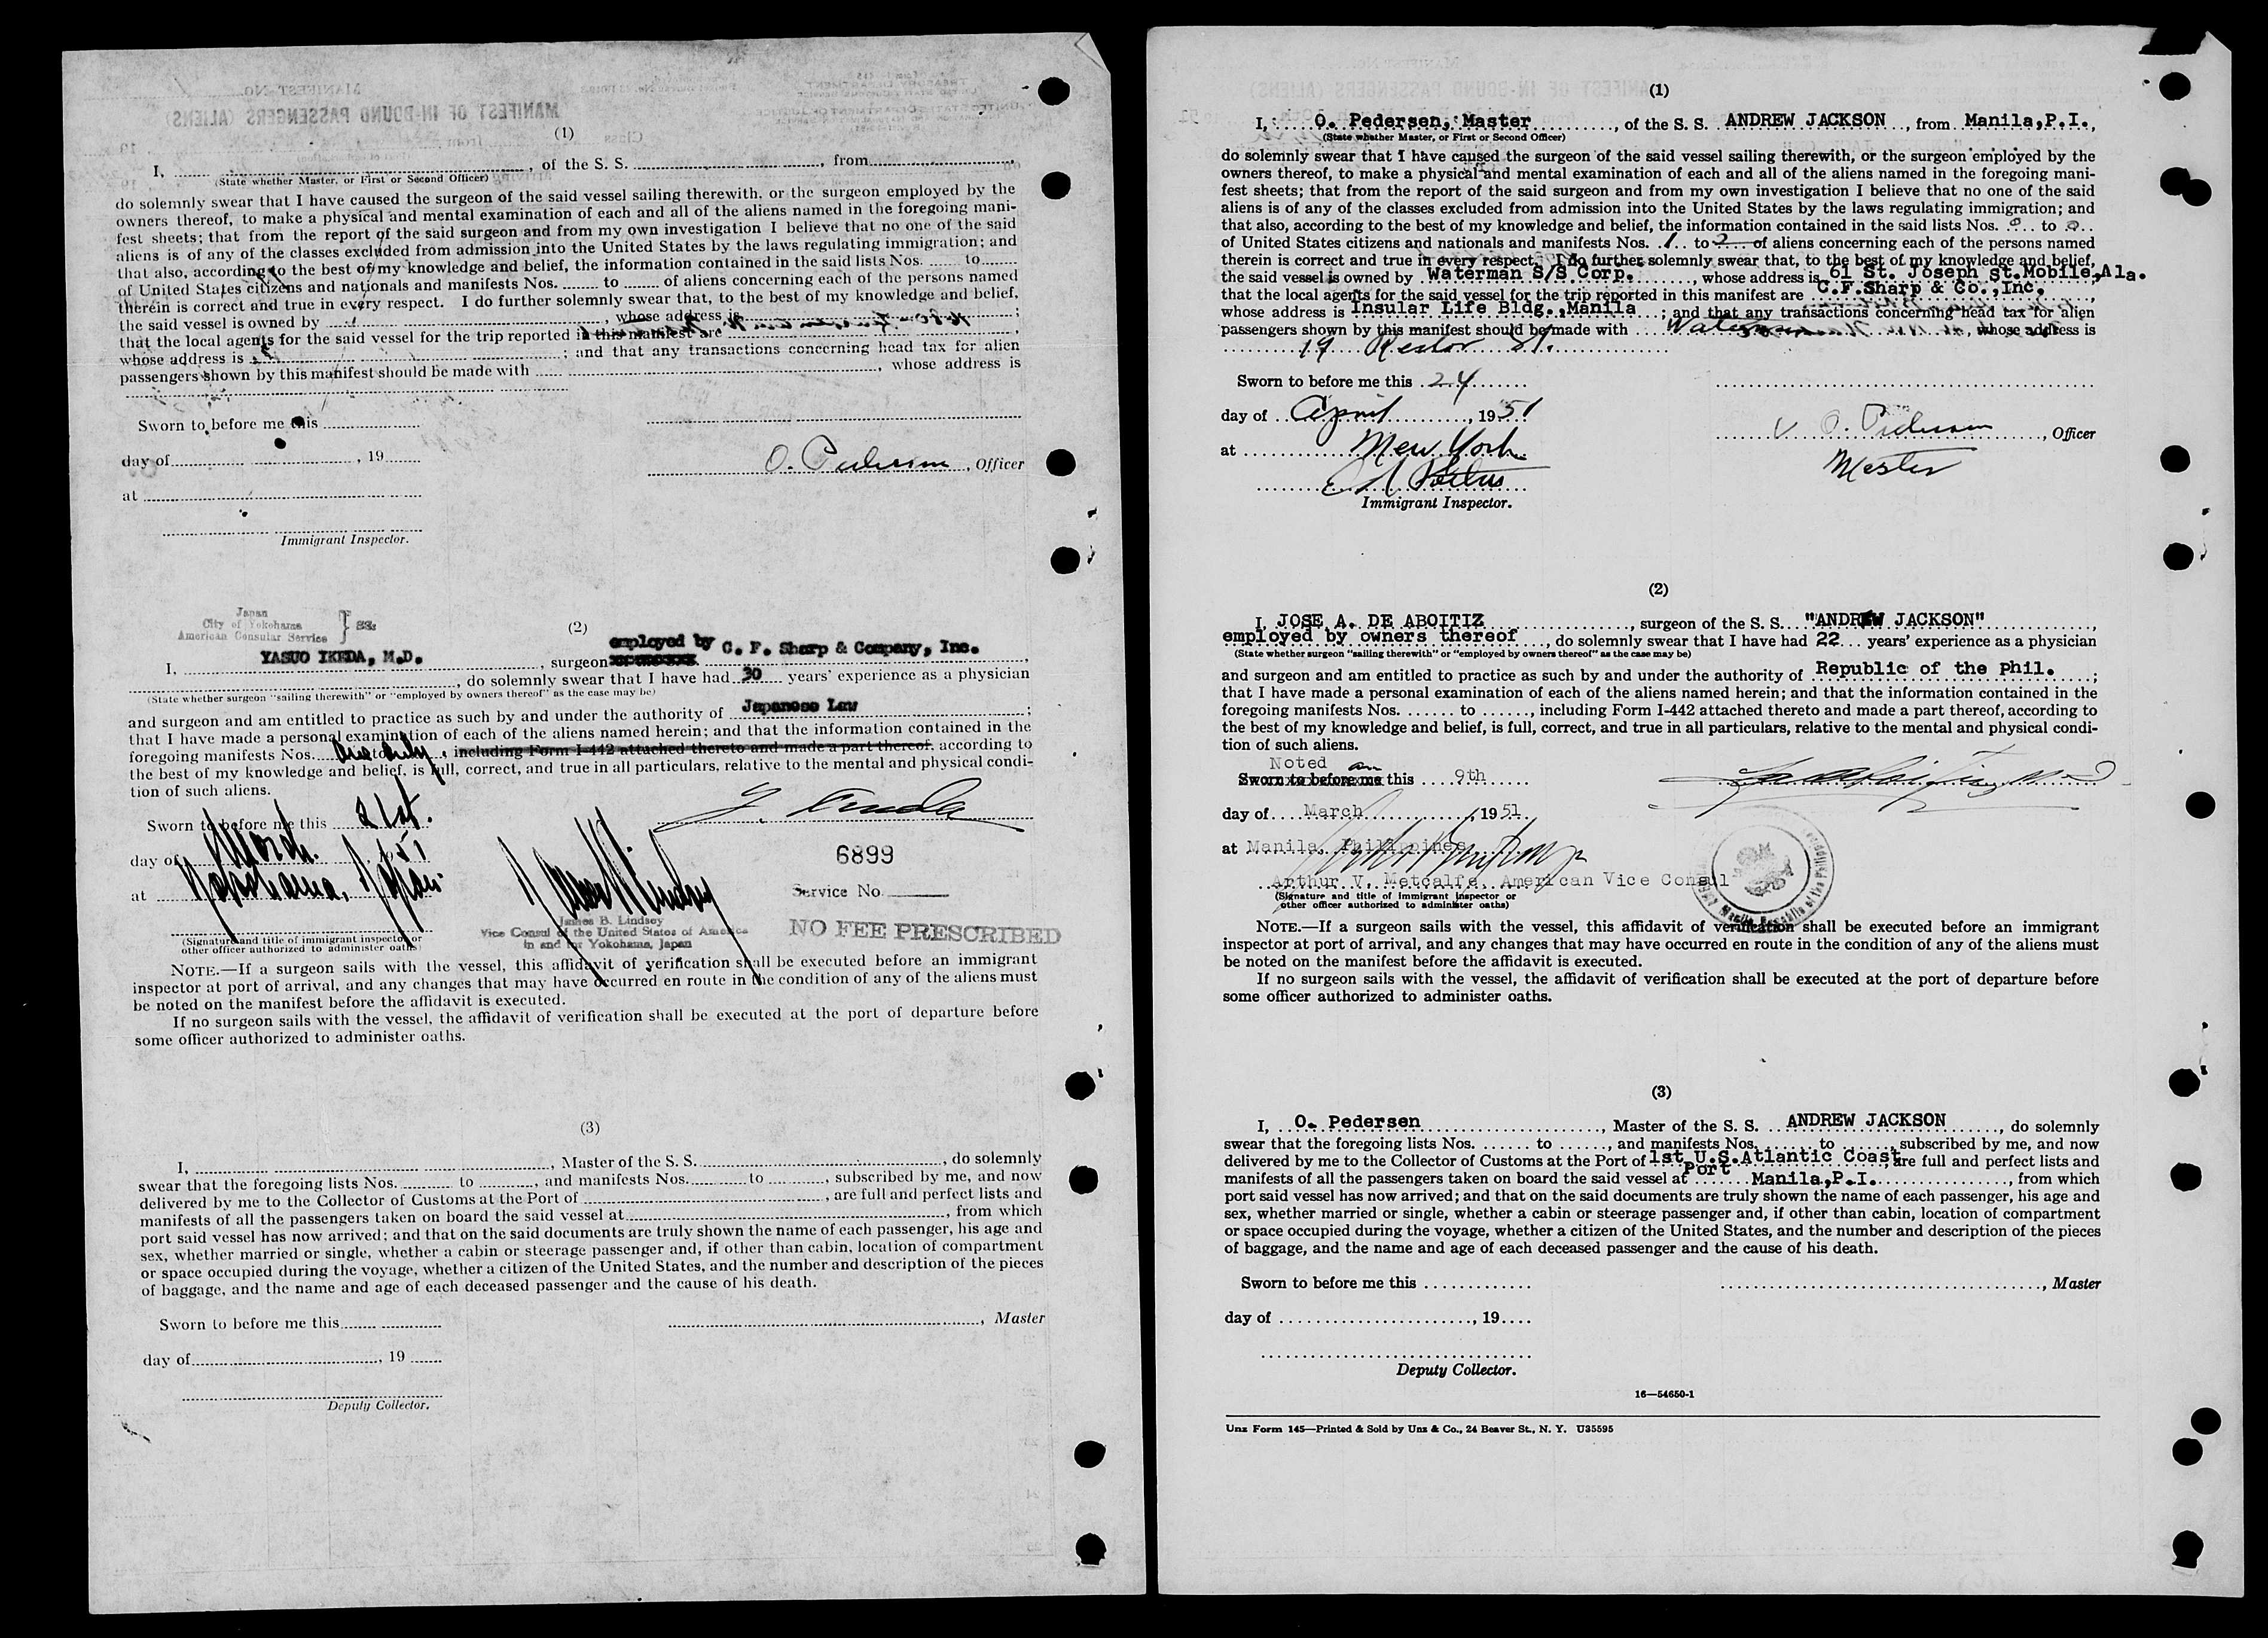 (1)
I, ........ , of the S. S. ........ , from ........
(State whether Master, or First or Second Officer)
do solemnly swear that I have caused the surgeon of the said vessel sailing therewith, or the surgeon employed by the
owners thereof, to make a physical and mental examination of each and all of the aliens named in the foregoing mani-
fest sheets; that from the report of the said surgeon and from my own investigation I believe that no one of the said
aliens is of any of the classes excluded from admission into the United States by the laws regulating immigration; and
that also, according to the best of my knowledge and belief, the information contained in the said lists Nos. ...... to ......
of United States citizens and nationals and manifests Nos. ...... to ...... of aliens concerning each of the persons named
therein is correct and true in every respect. I do further solemnly swear that, to the best of my knowledge and belief,
the said vessel is owned by ........ , whose address is ........ ;
that the local agents for the said vessel for the trip reported in this manifest are ........ ,
whose address is ........ ; and that any transactions concerning head tax for alien
passengers shown by this manifest should be made with ........ , whose address is
Sworn to before me this ........
day of ........ , 19 ......
O. Pedersen , Officer
at ........
Immigrant Inspector.
Japan
City of Yokohama
American Consular Service } SS:
(2)
I, YASUO IKEDA, M.D. , surgeon employed by C. F. Sharp & Company, Inc. ,
........ , do solemnly swear that I have had 30 years' experience as a physician
(State whether surgeon "sailing therewith" or "employed by owners thereof" as the case may be)
and surgeon and am entitled to practice as such by and under the authority of Japanese Law ;
that I have made a personal examination of each of the aliens named herein; and that the information contained in the
foregoing manifests Nos. one to only , including Form I-442 attached thereto and made a part thereof, according to
the best of my knowledge and belief, is full, correct, and true in all particulars, relative to the mental and physical condi-
tion of such aliens.
Sworn to before me this 21st.
day of March. , 1951
6899
at Yokohama, Japan
Service No. ________
James B. Lindsey
Vice Consul of the United States of America
in and for Yokohama, Japan
NO FEE PRESCRIBED
(Signature and title of immigrant inspector or
other officer authorized to administer oaths)
NOTE.—If a surgeon sails with the vessel, this affidavit of verification shall be executed before an immigrant
inspector at port of arrival, and any changes that may have occurred en route in the condition of any of the aliens must
be noted on the manifest before the affidavit is executed.
If no surgeon sails with the vessel, the affidavit of verification shall be executed at the port of departure before
some officer authorized to administer oaths.
(3)
I, ........ , Master of the S. S. ........ , do solemnly
swear that the foregoing lists Nos. ........ to ........ , and manifests Nos. ........ to ........ , subscribed by me, and now
delivered by me to the Collector of Customs at the Port of ........ , are full and perfect lists and
manifests of all the passengers taken on board the said vessel at ........ , from which
port said vessel has now arrived; and that on the said documents are truly shown the name of each passenger, his age and
sex, whether married or single, whether a cabin or steerage passenger and, if other than cabin, location of compartment
or space occupied during the voyage, whether a citizen of the United States, and the number and description of the pieces
of baggage, and the name and age of each deceased passenger and the cause of his death.
Sworn to before me this ........
........ , Master
day of ........ , 19 ......
Deputy Collector.
(1)
I, O. Pedersen, Master , of the S. S. ANDREW JACKSON , from Manila,P.I. ,
(State whether Master, or First or Second Officer)
do solemnly swear that I have caused the surgeon of the said vessel sailing therewith, or the surgeon employed by the
owners thereof, to make a physical and mental examination of each and all of the aliens named in the foregoing mani-
fest sheets; that from the report of the said surgeon and from my own investigation I believe that no one of the said
aliens is of any of the classes excluded from admission into the United States by the laws regulating immigration; and
that also, according to the best of my knowledge and belief, the information contained in the said lists Nos. 0 to 0
of United States citizens and nationals and manifests Nos. 1 to 2 of aliens concerning each of the persons named
therein is correct and true in every respect. I do further solemnly swear that, to the best of my knowledge and belief,
the said vessel is owned by Waterman S/S Corp. , whose address is 61 St. Joseph st.Mobile,Ala.
that the local agents for the said vessel for the trip reported in this manifest are C.F.Sharp & Co.,Inc. ,
whose address is Insular Life Bldg.,Manila ; and that any transactions concerning head tax for alien
passengers shown by this manifest should be made with Waterman , whose address is
19 Rector St.
Sworn to before me this 24
day of April , 1951
O. Pedersen , Officer
at New York
Master
Immigrant Inspector.
(2)
I, JOSE A. DE ABOITIZ , surgeon of the S. S. "ANDREW JACKSON" ,
employed by owners thereof , do solemnly swear that I have had 22 years' experience as a physician
(State whether surgeon "sailing therewith" or "employed by owners thereof" as the case may be)
and surgeon and am entitled to practice as such by and under the authority of Republic of the Phil. ;
that I have made a personal examination of each of the aliens named herein; and that the information contained in the
foregoing manifests Nos. ....... to ......, including Form I-442 attached thereto and made a part thereof, according to
the best of my knowledge and belief, is full, correct, and true in all particulars, relative to the mental and physical condi-
tion of such aliens.
Noted on
Sworn to before me this 9th
day of March , 1951.
at Manila, Philippines
Arthur V. Metcalfe, American Vice Consul
(Signature and title of immigrant inspector or
other officer authorized to administer oaths)
NOTE.—If a surgeon sails with the vessel, this affidavit of verification shall be executed before an immigrant
inspector at port of arrival, and any changes that may have occurred en route in the condition of any of the aliens must
be noted on the manifest before the affidavit is executed.
If no surgeon sails with the vessel, the affidavit of verification shall be executed at the port of departure before
some officer authorized to administer oaths.
(3)
I, O. Pedersen , Master of the S. S. ANDREW JACKSON , do solemnly
swear that the foregoing lists Nos. ....... to ......, and manifests Nos. ....... to ......, subscribed by me, and now
delivered by me to the Collector of Customs at the Port of 1st U.S.Atlantic Coast are full and perfect lists and
Port
manifests of all the passengers taken on board the said vessel at Manila,P.I. , from which
port said vessel has now arrived; and that on the said documents are truly shown the name of each passenger, his age and
sex, whether married or single, whether a cabin or steerage passenger and, if other than cabin, location of compartment
or space occupied during the voyage, whether a citizen of the United States, and the number and description of the pieces
of baggage, and the name and age of each deceased passenger and the cause of his death.
Sworn to before me this ..............
........ , Master
day of ........ , 19....
Deputy Collector.
16—54650-1
Unz Form 145—Printed & Sold by Unz & Co., 24 Beaver St., N. Y. U35595